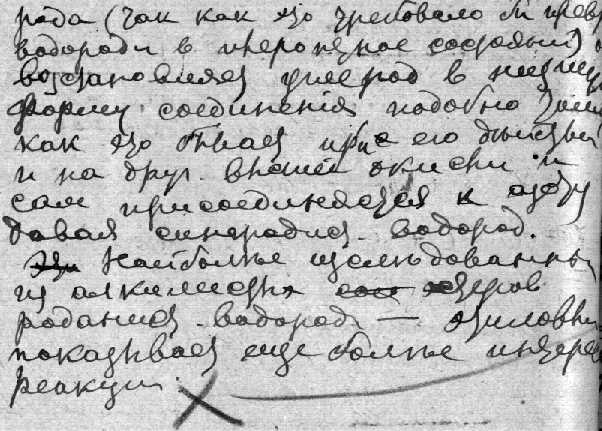 рода (так как это требовало бы превр
водорода в состояніи)
возстановляя углерод в низшую
форму соединенія подобно тому
как это бывает при его дѣйствіи
и на друг. высшіе окиси и
сам присоединяется к азоту
давая синеродист. водород.
Наиболѣе изслѣдованный
из алкилистых эѳиров
роданист. водорода — этиловый
показывает еще болѣе интерес
реакции.